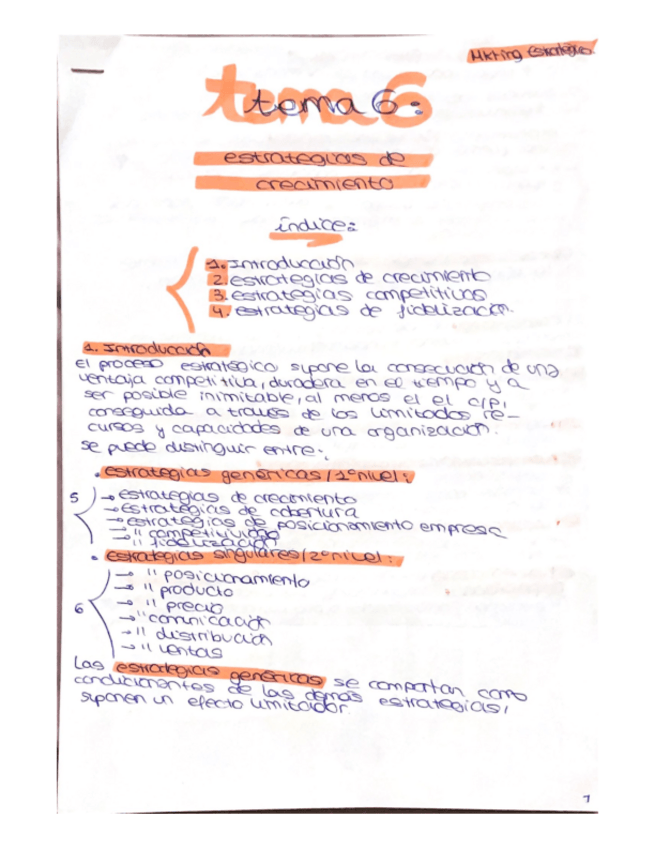 Mkting Estratégico.
tema 6:
estrategias de
crecimiento
índice:
1. Introducción
2. estrategias de crecimiento
3. estrategias competitivas
4. estrategias de fidelización.
1. Introducción
El proceso estratégico supone la consecución de una
ventaja competitiva, duradera en el tiempo y a
ser posible inimitable, al menos el el c/p,
conseguida a través de los limitados re-
cursos y capacidades de una organización.
se puede distinguir entre:
• estrategias genéricas / 1º nivel:
5 → estrategias de crecimiento
→ estrategias de cobertura
→ estrategias de posicionamiento empresa
→ " competitividad
→ " fidelización
• estrategias singulares / 2º nivel:
→ " posicionamiento
→ " producto
6 → " precio
→ " comunicación
→ " distribución
→ " ventas
Las estrategias genéricas se comportan como
condicionantes de las demás estrategias,
suponen un efecto limitador.
1